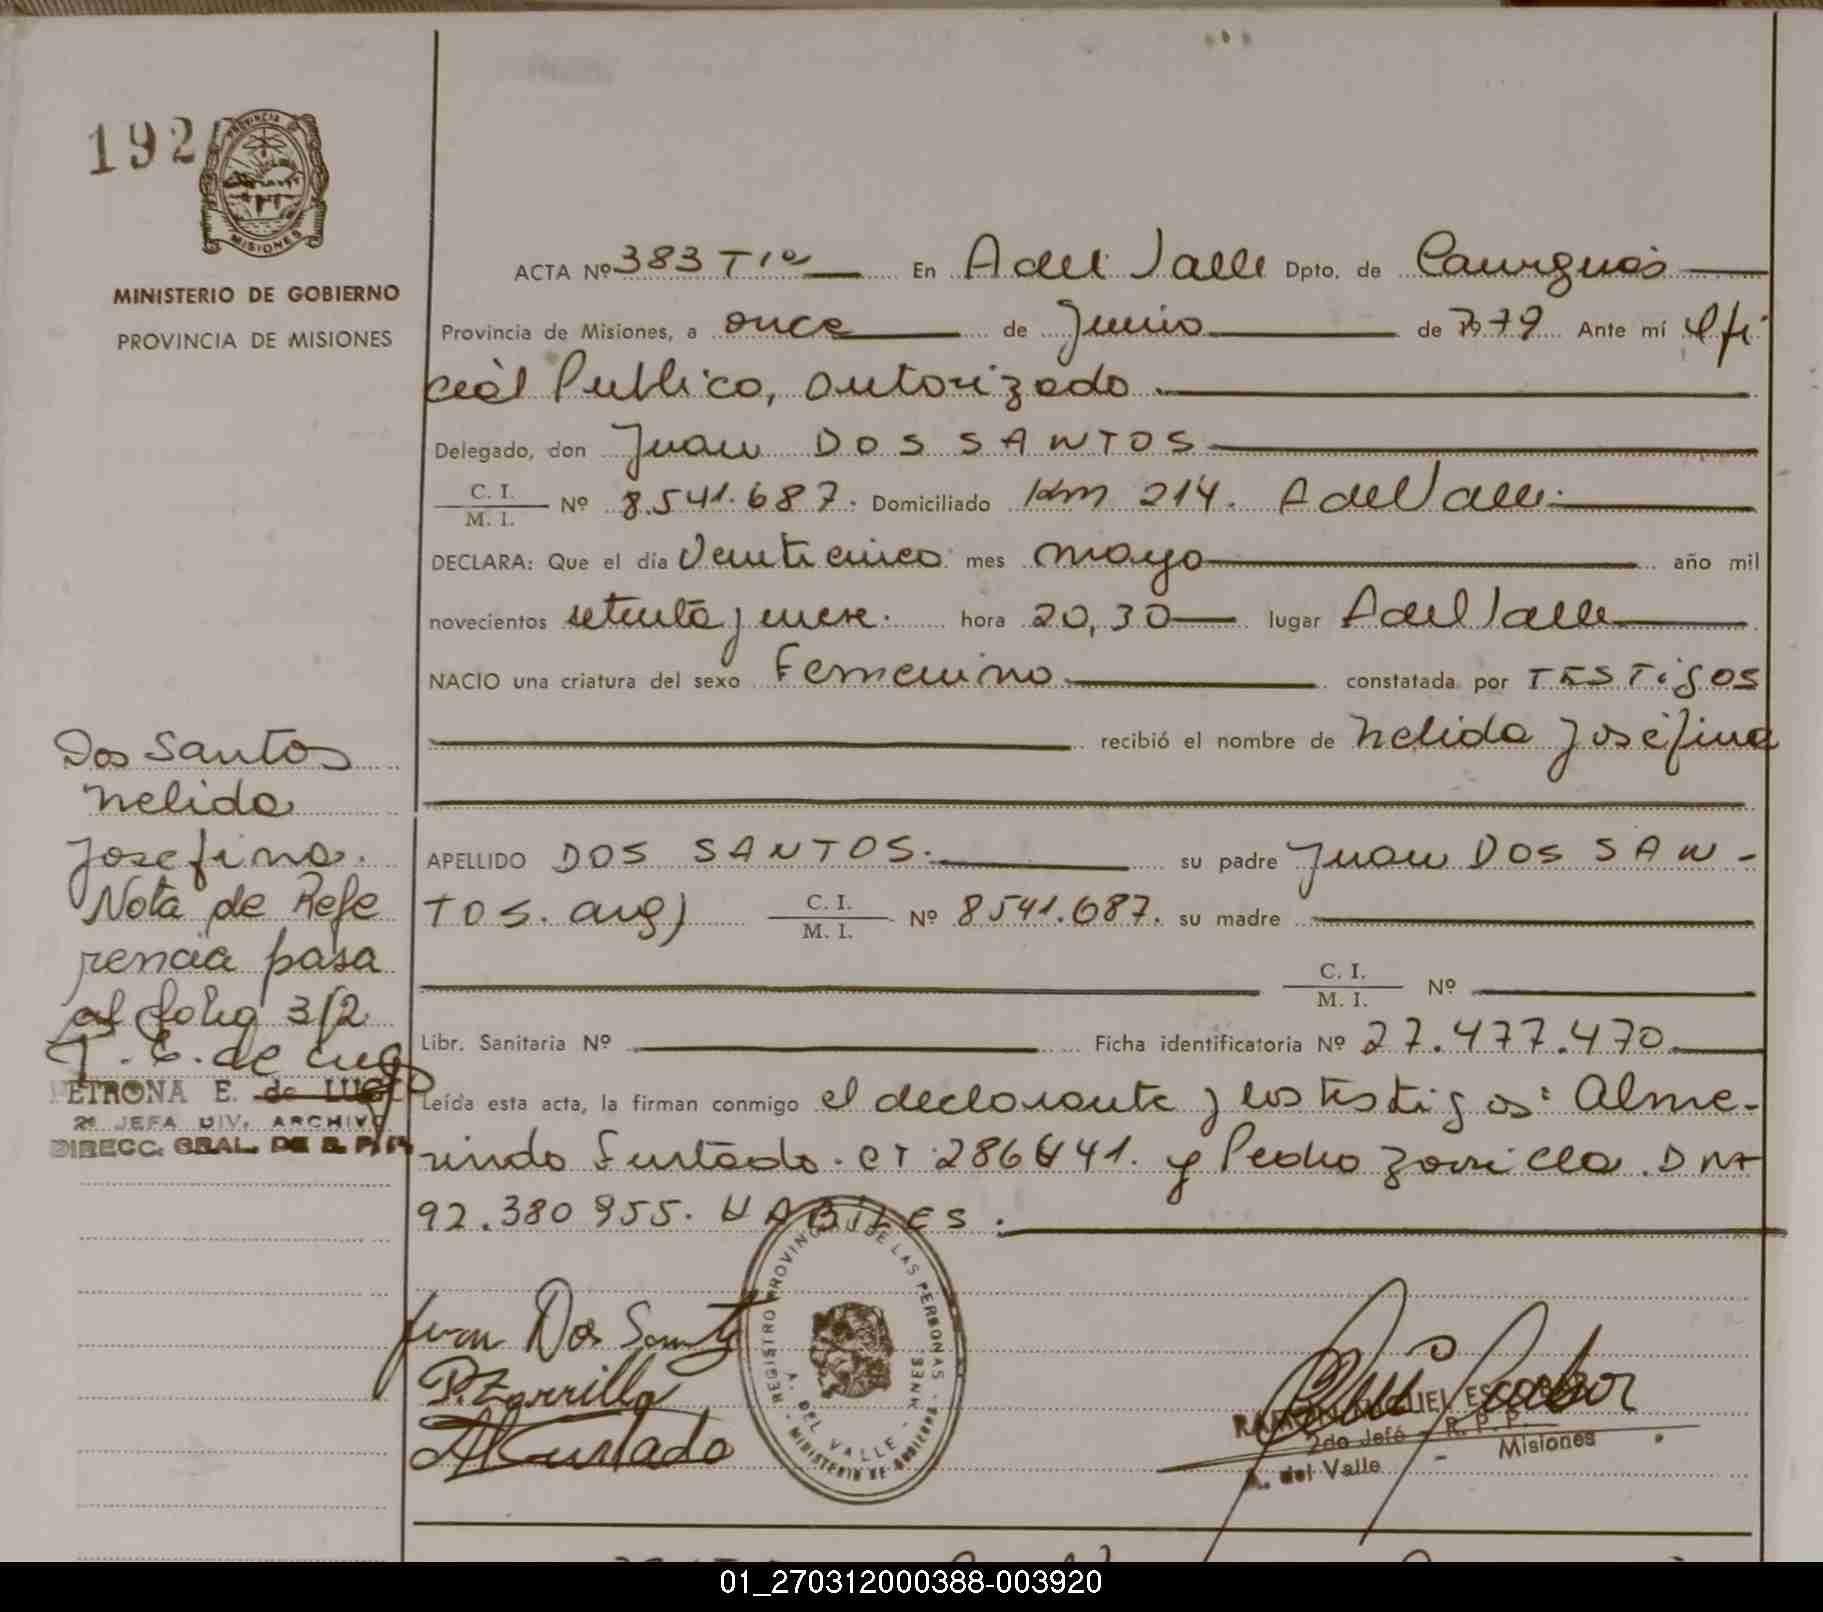 192
PROVINCIA
MISIONES
MINISTERIO DE GOBIERNO
PROVINCIA DE MISIONES
ACTA Nº 383 T1º En A del Valle Dpto. de Cainguás
Provincia de Misiones, a once de Junio de 979 Ante mí Ofi
cial Publico, autorizado.
Delegado, don Juan DOS SANTOS
C. I.
M. I. Nº 8.541.687. Domiciliado Km 214. A del Valle.
DECLARA: Que el día Veinticinco mes mayo año mil
novecientos setenta y nueve. hora 20,30 lugar A del Valle
NACIO una criatura del sexo Femenino constatada por TESTigos
recibió el nombre de Nelida Josefina
APELLIDO DOS SANTOS. su padre Juan DOS SAN-
TOS. arg) C. I.
M. I. Nº 8541.687. su madre
C. I.
M. I. Nº
Libr. Sanitaria Nº Ficha identificatoria Nº 27.477.470
Leída esta acta, la firman conmigo el declarante y los testigos: Alme-
rindo Furtado. CI 286441. y Pedro Zarrilla. DNI
92.380955. HABILES.
Dos Santos
Nelida
Josefina.
Nota de Refe
rencia pasa
al folio 312
P. E. de Lugo
PETRONA E. de LUGO
2ª JEFA DIV. ARCHIVO
DIRECC. GRAL. DE R. P. P.
Juan Dos Santos
P. Zarrilla
A Furtado
REGISTRO PROVINCIAL DE LAS PERSONAS
A. DEL VALLE - MNES.
MINISTERIO DE GOBIERNO
RAMON MIGUEL ESCOBAR
2do Jefe - R. P. P.
A. del Valle - Misiones
01_270312000388-003920